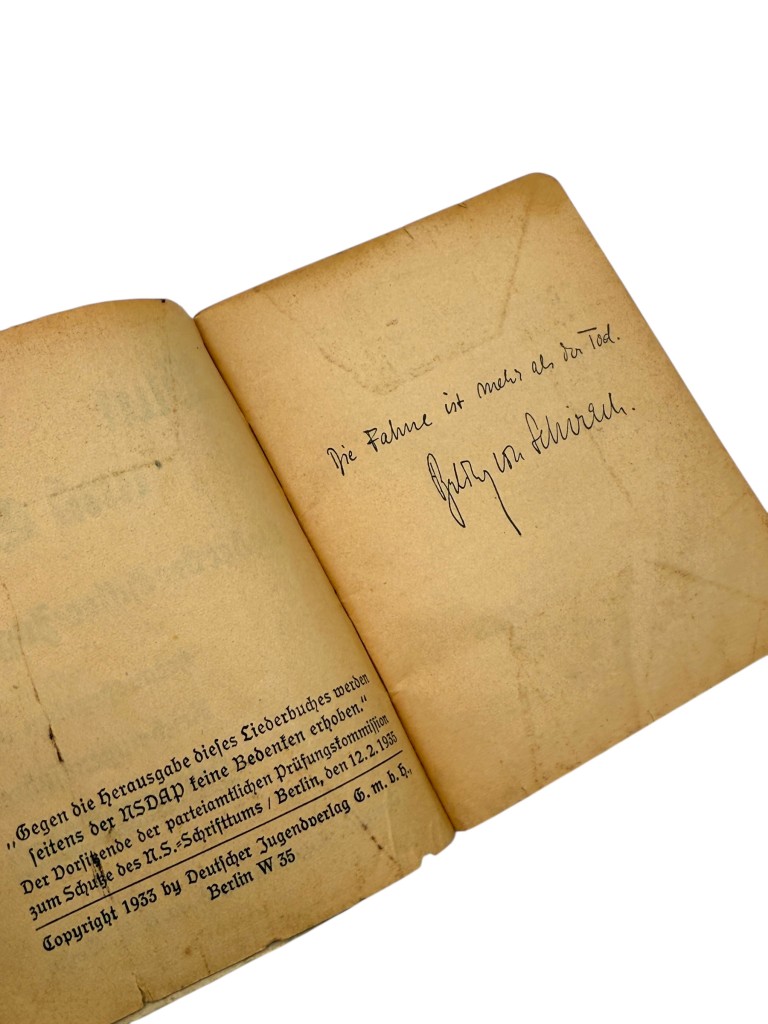 „Gegen die Herausgabe dieses Liederbuches werden
seitens der NSDAP keine Bedenken erhoben.“
Der Vorsitzende der parteiamtlichen Prüfungskommission
zum Schutze des N.S.=Schrifttums / Berlin, den 12.2.1935
Copyright 1933 by Deutscher Jugendverlag G. m. b. H.,
Berlin W 35
Die Fahne ist mehr als der Tod.
Baldur von Schirach.